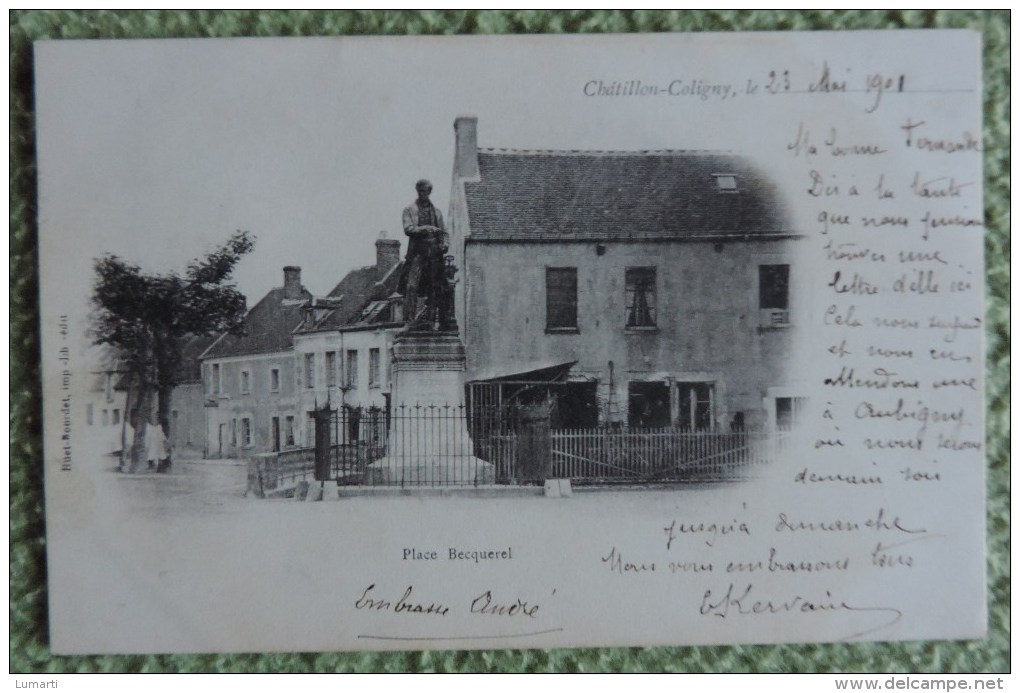 Châtillon-Coligny, le 23 Mai 1901
Ma bonne Fernande
Dis à la tante
que nous
trouver une
lettre d'elle ici
Cela nous
et nous en
attendons une
à Aubigny
où nous serons
demain soir
jusqu'à dimanche
Nous vous embrassons tous
EKervain
Embrasse André
Place Becquerel
Ruet-Bourdet, imp-lib-édit
Lumarti
www.delcampe.net